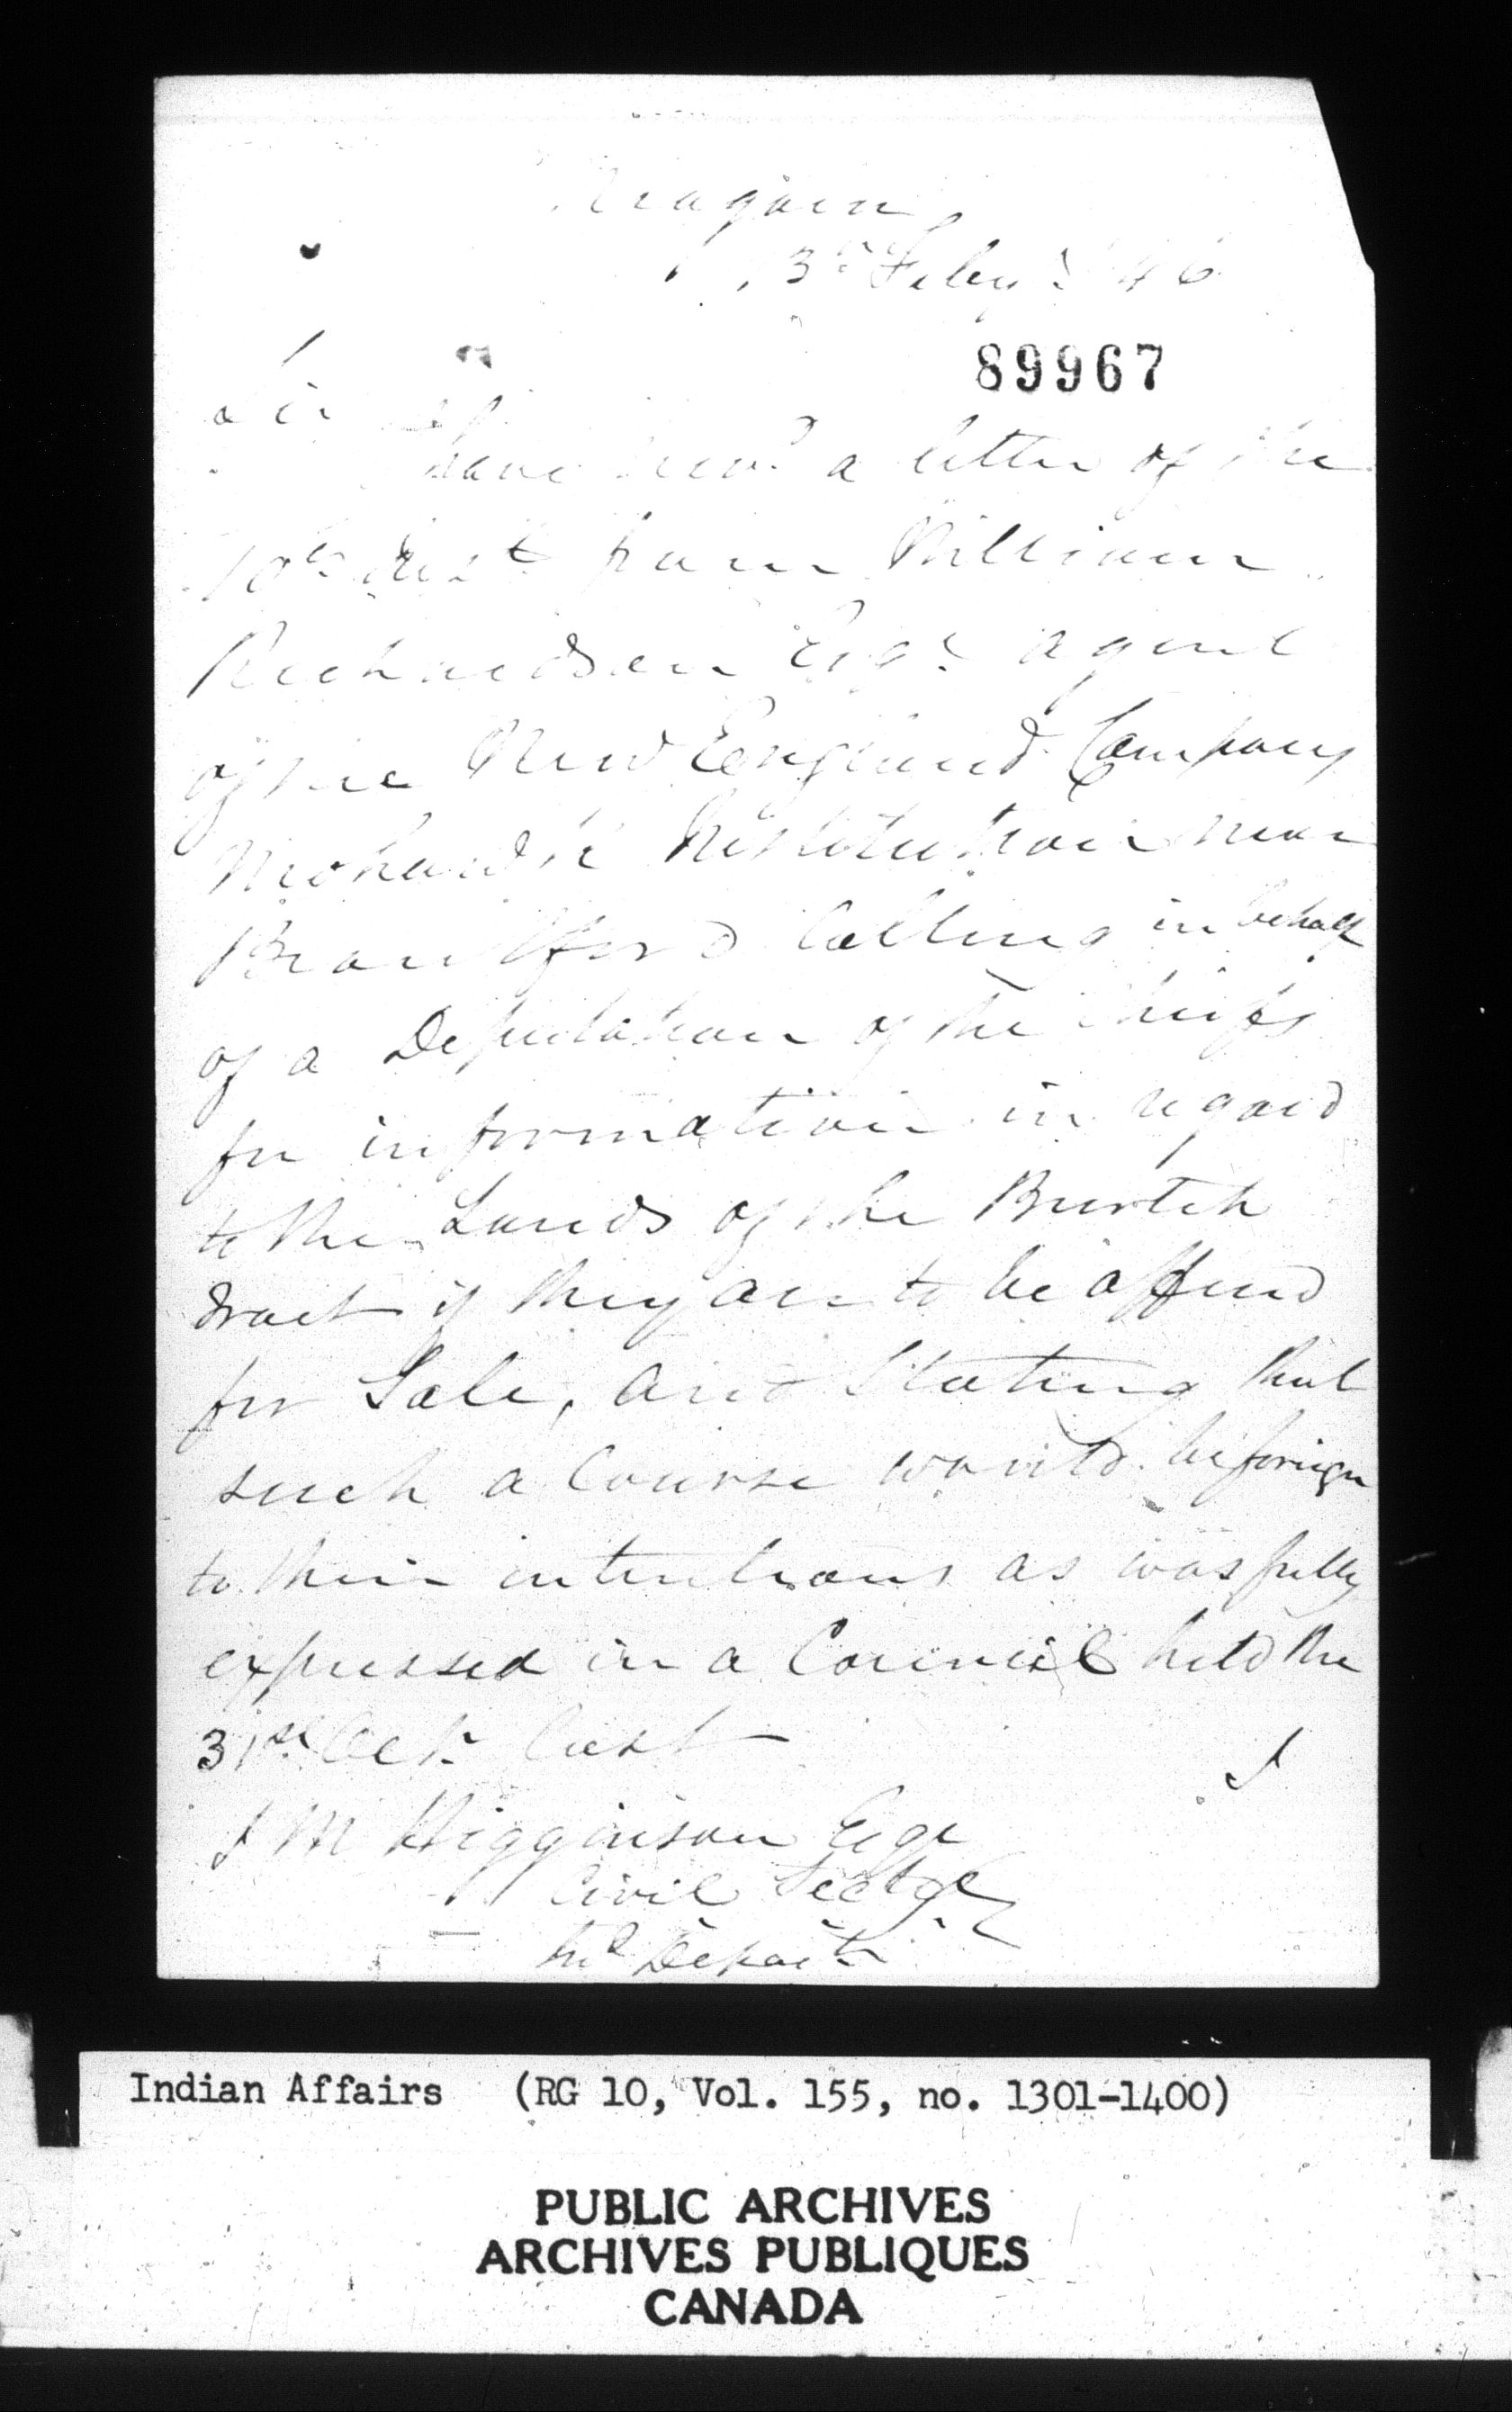 Niagara
13th Feby. 46
89967
Sir
I have recd. a letter of the
10th Inst. from William
Richardson Esqr. agent
of the New England Company
Mohawk Institution near
Brantford Calling in behalf
of a Deputation of the Chiefs
for information in regard
to the Lands of the Burtch
tract if they are to be offered
for Sale, and Stating that
such a Course would be foreign
to their intentions as was fully
expressed in a Council held the
31st. Oct. last
I
J M Higginson Esqr
Civil Secty
Ind Depart.
Indian Affairs (RG 10, Vol. 155, no. 1301-1400)
PUBLIC ARCHIVES
ARCHIVES PUBLIQUES
CANADA